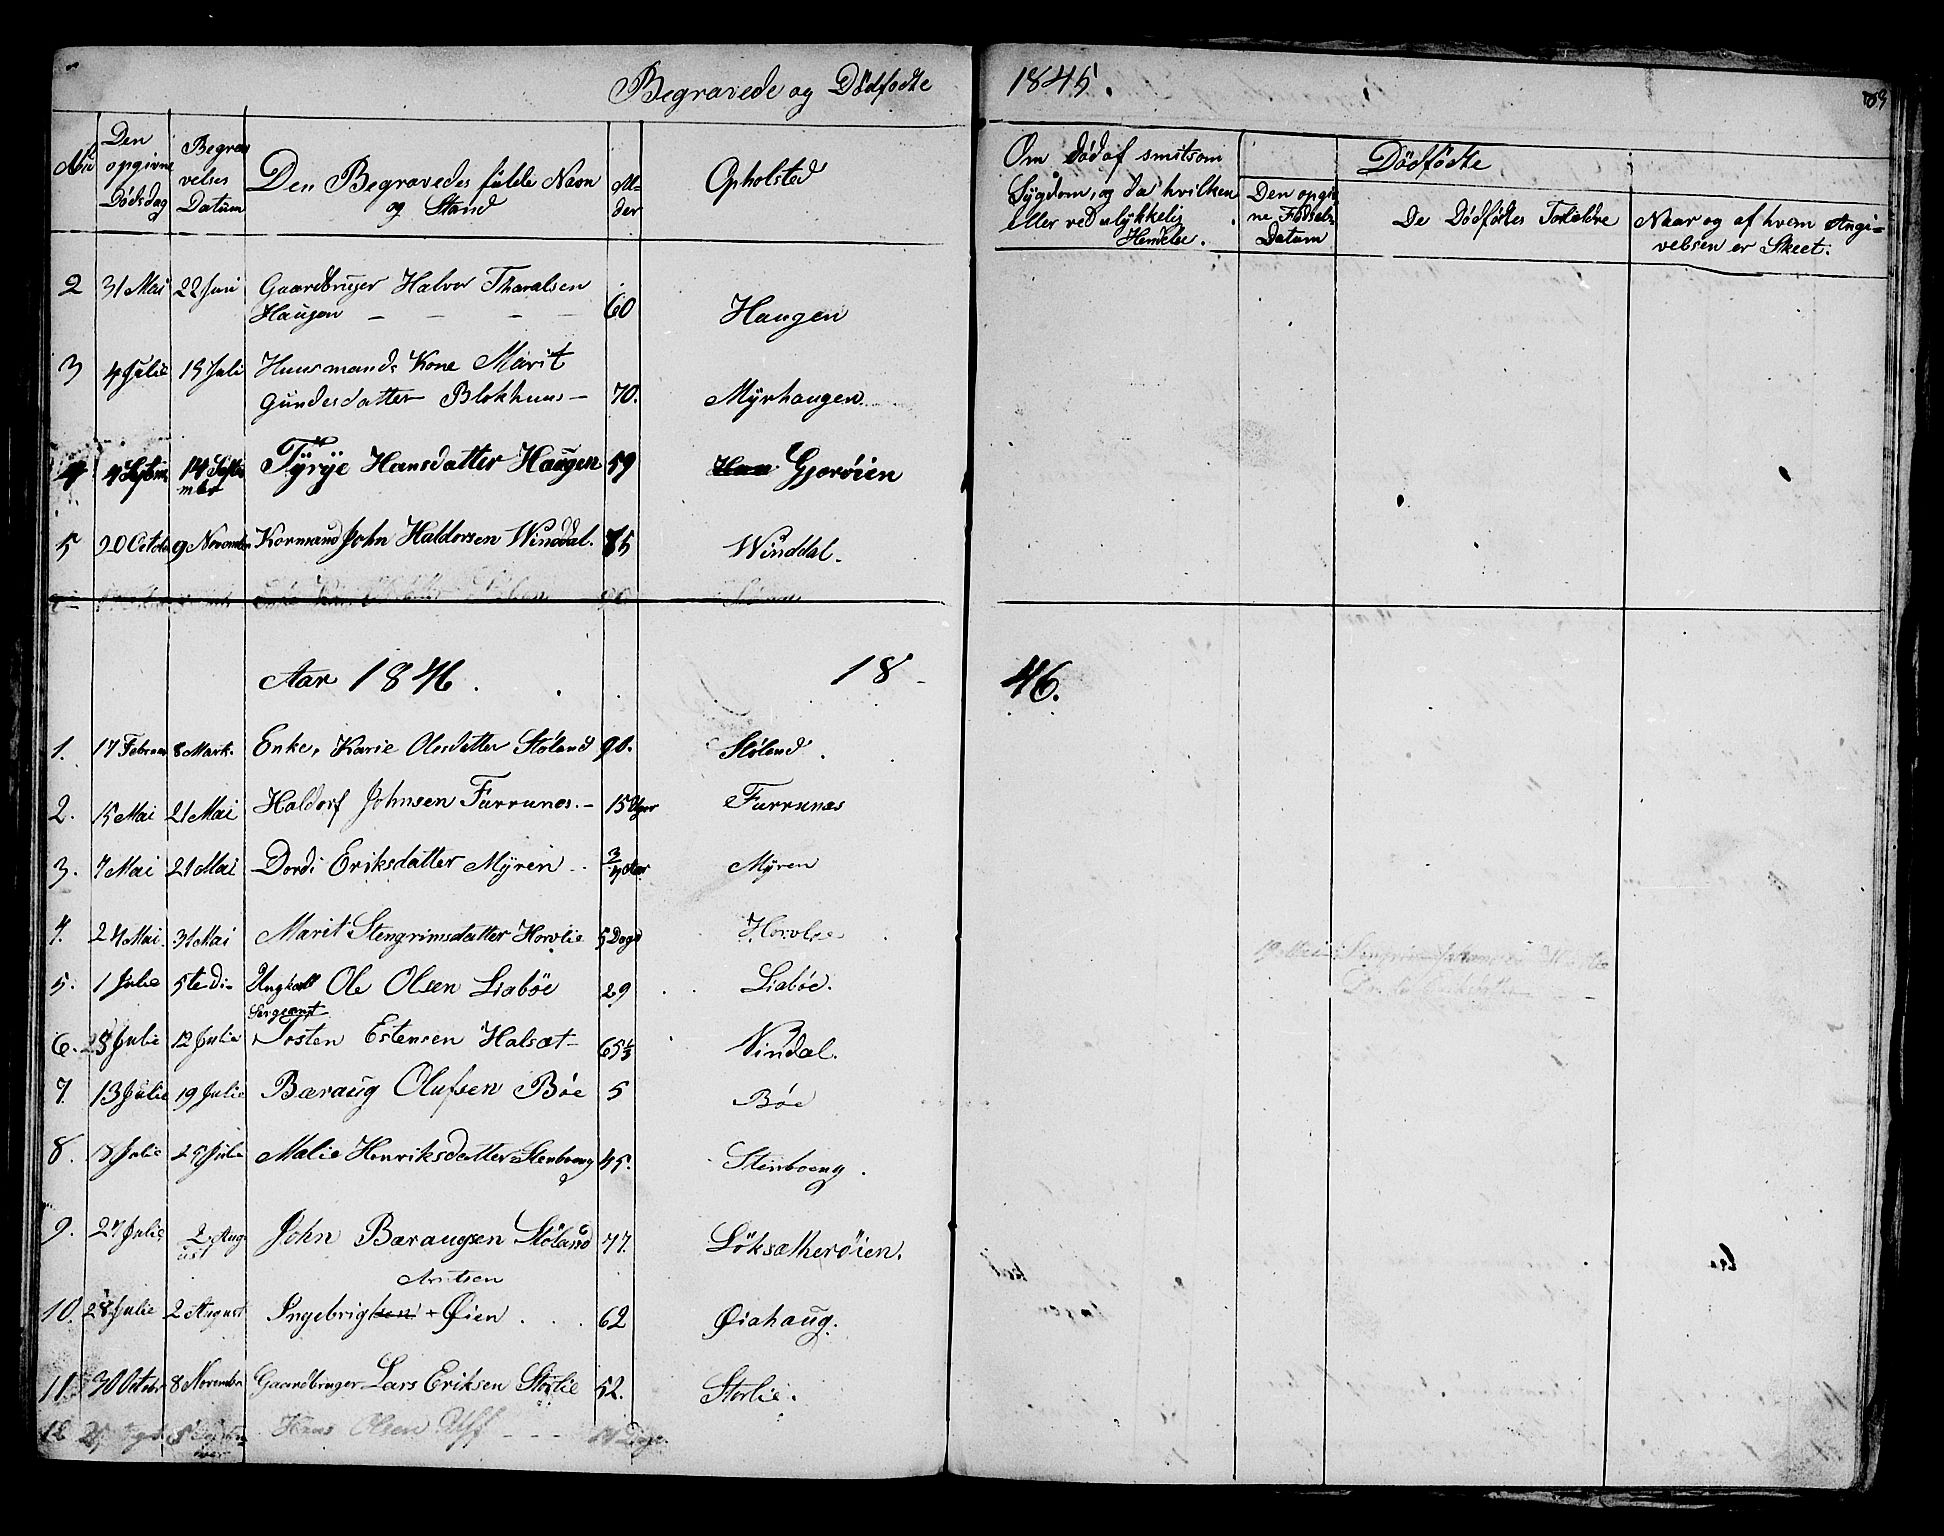 Begravede og Dödfödte 1845.
83
Den opgivne Dödsdag
Begravelses Datum
Den Begravedes fulde Navn og Stand
Al-der
Opholsted
Om död af smitsom Sygdom, og da hvilken eller ved ulykkelig Hendelse.
Dödfödte
Den opgivne Födsels Datum
De Dödfödtes Forældre
Naar og af hvem Angivelsen er Skeet.
2 31 Mai 22 Juni Gaardbruger Halvor Tharalsen
Haugen 60 Haugen
3 4 Julie 15 Juli Huusmands Kone Marit
Gundesdatter Blokhuus 70. Myrhaugen
4 14 Septe
mber Tyrye Hansdatter Haugen 59 Gjorøien
5 20 Octobr 9 November John Haldorsen Winddal. 75 Winddal.
Aar 1846. 1846.
1. 17 Februar 8 Mark. Enke, Karie Olesdatter Støland 90. Støland.
2. 15 Mai 21 Mai Haldorf Johnsen Furrunes. 15 Uger Furrunes
3. 7 Mai 21 Mai Dordi Eriksdatter Myren 3/4 Aar Myren
4. 24 Mai 31 Mai Marit Stengrimsdatter Horvlie 5 Dage Horvlie
19 Mai
5. 1 Julie 5te di- Ungkarl Ole Olsen Liabøe 29 Liabøe.
Sergeant
6. 28 Julie 12 Julie Tosten Estensen Halsæt 65 1/3 Vindal.
7. 13 Julie 19 Julie Bæraug Olufsen Bøe 5 Bøe
8. 18 Julie 25 Julie Malie Henriksdatter Stenboeng 45. Stenboeng.
9. 27 Julie 2 August John Bæraugsen Støland 77. Löksætherøien.
Arntsen
10. 28 Julie 2 August Ingebrigtsen + Øien 62 Øiahaug.
11 30 Octobr 8 November Gaardbruger Lars Eriksen Storlie 52. Storlie.
12 Hans Olsen 14 Dage